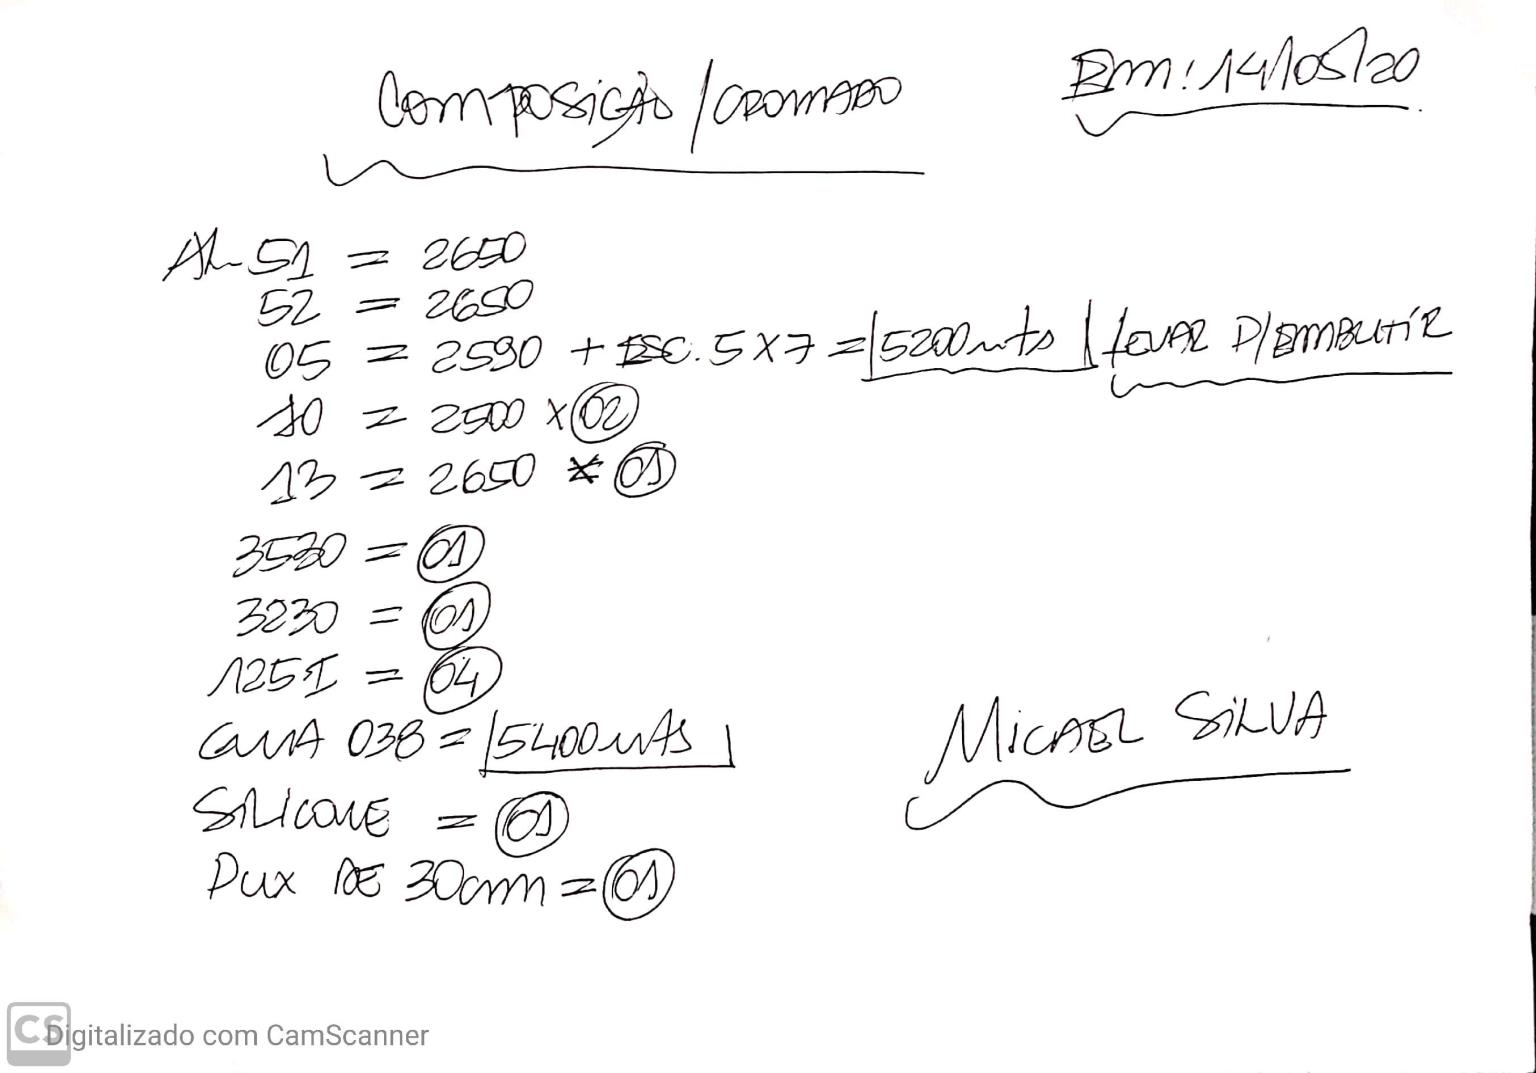 COMPOSIÇÃO / CROMADO
Em: 14/05/20
AL 51 = 2650
52 = 2650
05 = 2590 + ESC. 5X7 = 5200 mts P/EMBUTIR
10 = 2500 X 02
13 = 2650 X 01
3530 = 01
3230 = 01
125I = 04
GUIA 038 = 5400 mts
SILICONE = 01
PUX DE 30cm = 01
MICAEL SILVA
CS Digitalizado com CamScanner